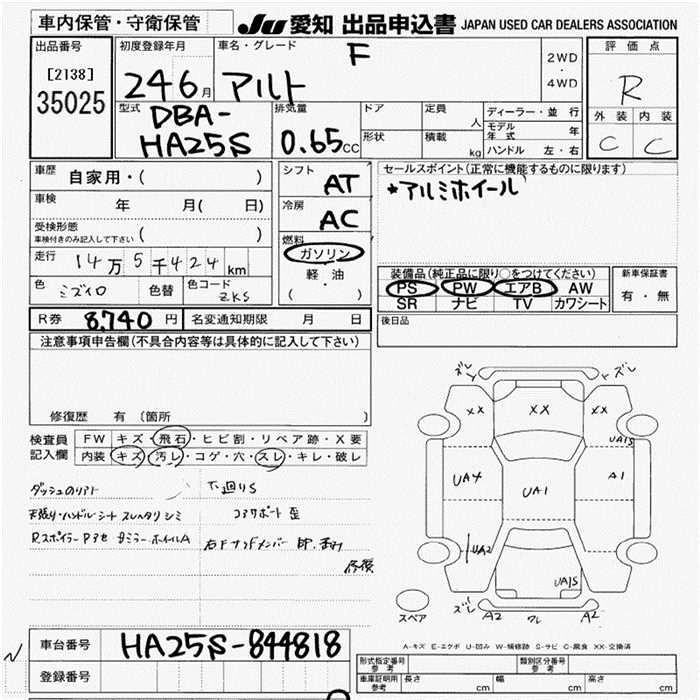 車内保管・守衛保管
JU 愛知 出品申込書 JAPAN USED CAR DEALERS ASSOCIATION
出品番号
[2138]
35025
初度登録年月
24 6月
車名・グレード
F
アルト
2WD
・
4WD
評価点
R
外装 内装
C C
型式
DBA-
HA25S
排気量
0.65cc
ドア
形状
定員 人
積載 kg
ディーラー・並行
モデル年式 年
ハンドル 左・右
車歴 自家用・( )
車検 年 月( 日)
受検形態
車検付きのみ記入して下さい ( )
走行 14万5千424km
色 ミズイロ 色替 色コード ZKS
シフト AT
冷房 AC
燃料
ガソリン
軽・油
( )
セールスポイント(正常に機能するものに限ります)
*アルミホイール
装備品(純正品に限り○をつけてください)
PS PW エアB AW
SR ナビ TV カワシート
新車保証書
有・無
R券 8,740円 名変通知期限 月 日
後日品
注意事項申告欄(不具合内容等は具体的に記入して下さい)
修復歴 有 (箇所 )
検査員記入欄
FW キズ・飛石・ヒビ割・リペア跡・X要
内装 キズ・汚レ・コゲ・穴・スレ・キレ・破レ
下廻りS
コアサポート歪
天張り・ハンドル・シート スレヘタリシミ
修復
ズレ ズレ
XX XX XX
UA1S
UA4 UA1 A1
UA2 UA1S
スペア
ズレ A2 ワレ A2
A-キズ E-エクボ U-凹み W-補修跡 S-サビ C-腐食 XX-交換済
車台番号 HA25S-844818
登録番号
形式指定番号 参考 類別区分番号 参考
車庫証明用 参考 長さ cm 幅 cm 高さ cm